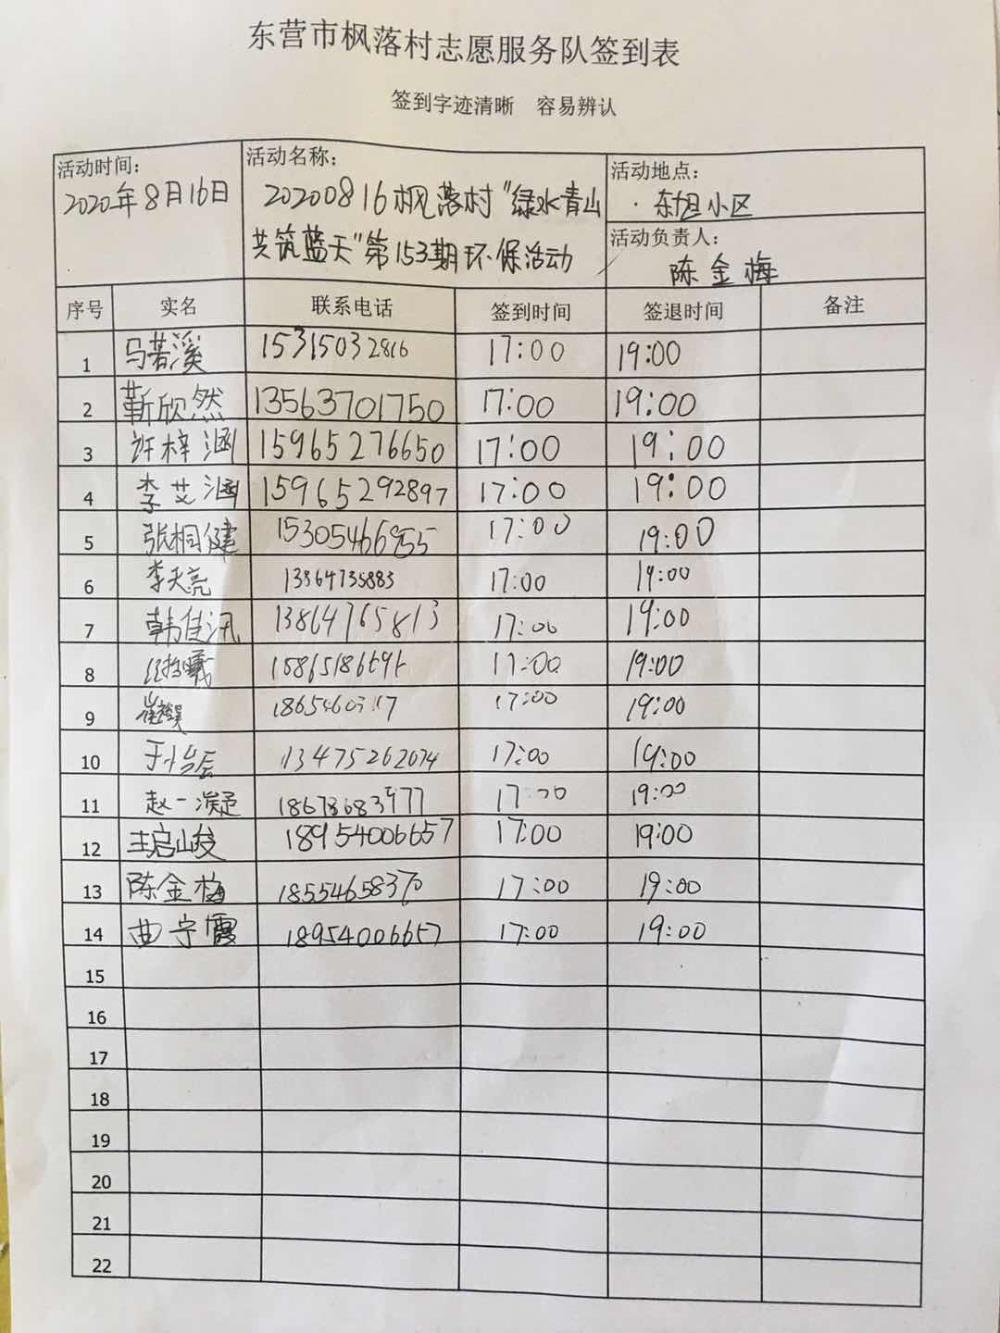 东营市枫落村志愿服务队签到表
签到字迹清晰 容易辨认
活动时间：
2020年8月16日
活动名称：
20200816枫落村"绿水青山
共筑蓝天"第153期环保活动
活动地点：
东旭小区
活动负责人：
陈金梅
序号 实名 联系电话 签到时间 签退时间 备注
1 马若溪 15315032816 17:00 19:00
2 靳欣然 13563701750 17:00 19:00
3 许梓涵 15965276650 17:00 19:00
4 李艾涵 15965292897 17:00 19:00
5 张桐健 17:00 19:00
6 李天亮 17:00 19:00
7 韩佳汛 13864765813 17:00 19:00
8 17:00 19:00
9 17:00 19:00
10 于怡辰 13475262074 17:00 19:00
11 赵一凝 17:00 19:00
12 王启山 18954006657 17:00 19:00
13 陈金梅 18554658370 17:00 19:00
14 曲宁霞 18954006657 17:00 19:00
15
16
17
18
19
20
21
22